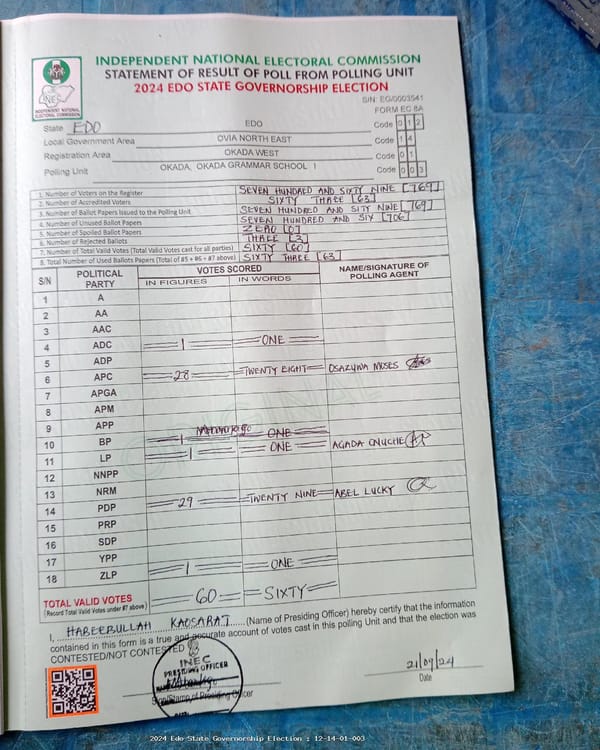 INDEPENDENT NATIONAL ELECTORAL COMMISSION
STATEMENT OF RESULT OF POLL FROM POLLING UNIT
2024 EDO STATE GOVERNORSHIP ELECTION
INEC
INDEPENDENT NATIONAL ELECTORAL COMMISSION
S/N: EG/0003541
FORM EC 8A
State EDO EDO Code 0 1 2
Local Government Area OVIA NORTH EAST Code 1 4
Registration Area OKADA WEST Code 0 1
Polling Unit OKADA, OKADA GRAMMAR SCHOOL I Code 0 0 3
1. Number of Voters on the Register SEVEN HUNDRED AND SIXTY NINE [769]
2. Number of Accredited Voters SIXTY THREE [63]
3. Number of Ballot Papers Issued to the Polling Unit SEVEN HUNDRED AND SITY NINE [769]
4. Number of Unused Ballot Papers SEVEN HUNDRED AND SIX [706]
5. Number of Spoiled Ballot Papers ZERO [0]
6. Number of Rejected Ballots THREE [3]
7. Number of Total Valid Votes (Total Valid Votes cast for all parties) SIXTY [60]
8. Total Number of Used Ballots Papers (Total of #5 + #6 + #7 above) SIXTY THREE [63]
S/N POLITICAL PARTY VOTES SCORED NAME/SIGNATURE OF POLLING AGENT
IN FIGURES IN WORDS
1 A
2 AA
3 AAC
4 ADC 1 ONE
5 ADP
6 APC 28 TWENTY EIGHT OSAZUWA MOSES
7 APGA
8 APM
9 APP
10 BP 1 ONE
11 LP 1 ONE AGADA ONUCHE
12 NNPP
13 NRM
14 PDP 29 TWENTY NINE ABEL LUCKY
15 PRP
16 SDP
17 YPP
18 ZLP 1 ONE
ORIGINAL
TOTAL VALID VOTES 60 SIXTY
(Record Total Valid Votes under #7 above)
I, HABEEBULLAH KAOSARAT (Name of Presiding Officer) hereby certify that the information
contained in this form is a true and accurate account of votes cast in this polling Unit and that the election was
CONTESTED/NOT CONTESTED
INEC
PRESIDING OFFICER
Sign/Stamp of Presiding Officer
21/09/24
Date
2024 Edo State Governorship Election : 12-14-01-003